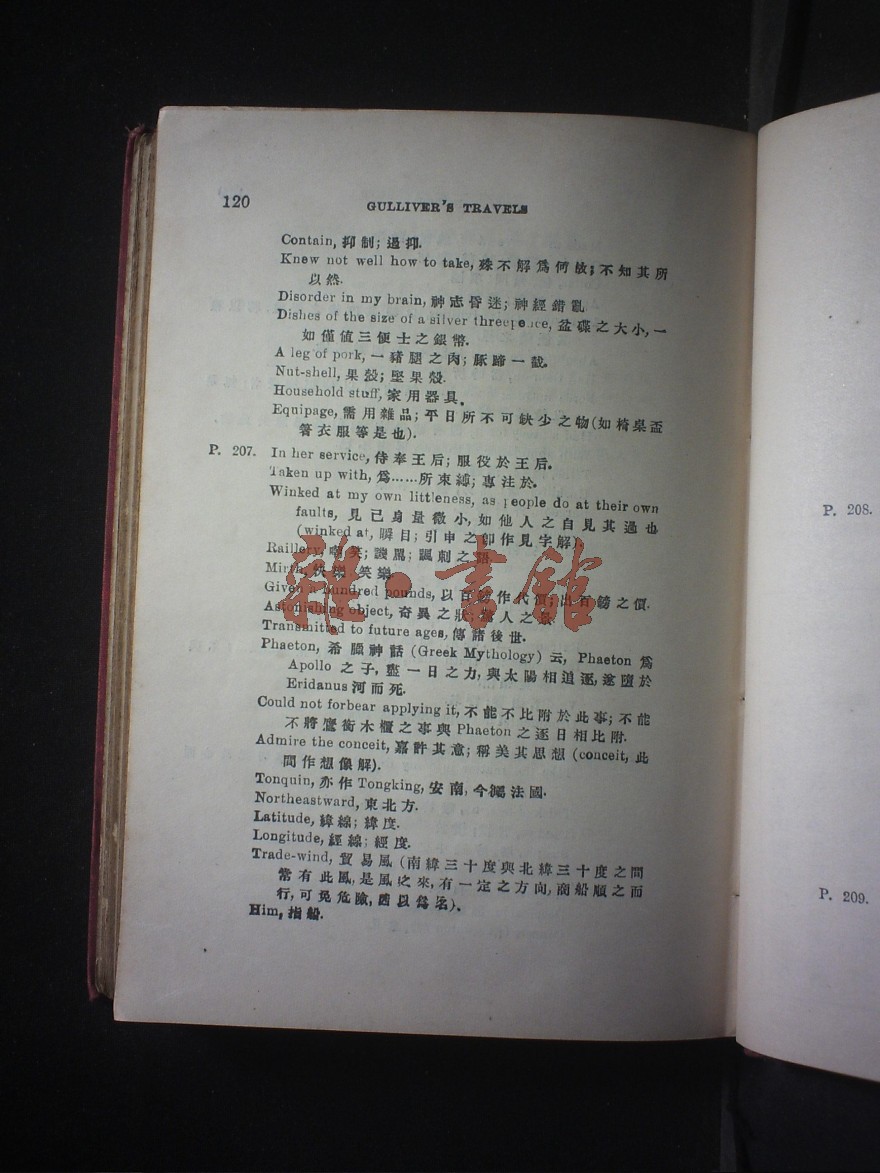 120
GULLIVER'S TRAVELS
Contain, 抑制; 遏抑.
Knew not well how to take, 殊不解爲何故; 不知其所
以然.
Disorder in my brain, 神志昏迷; 神經錯亂
Dishes of the size of a silver threepence, 盆碟之大小, 一
如僅値三便士之銀幣.
A leg of pork, 一豬腿之肉; 豚蹄一截.
Nut-shell, 果殼; 堅果殼.
Household stuff, 家用器具.
Equipage, 需用雜品; 平日所不可缺少之物 (如椅桌盃
箸衣服等是也).
P. 207. In her service, 侍奉王后; 服役於王后.
Taken up with, 爲......所束縛; 專注於.
Winked at my own littleness, as people do at their own
faults, 見己身量微小, 如他人之自見其過也
(winked at, 瞬目; 引申之卽作見字解)
Raillery, 笑; 謾罵; 諷刺之語
Mirth, 快樂 笑樂.
Given a hundred pounds, 以百鎊作代價; 出百鎊之價.
Astonishing object, 奇異之狀; 驚人之
Transmitted to future ages, 傳諸後世.
Phaeton, 希臘神話 (Greek Mythology) 云, Phaeton 爲
Apollo 之子, 盡一日之力, 與太陽相追逐, 遂墮於
Eridanus 河而死.
Could not forbear applying it, 不能不比附於此事; 不能
不將鷹銜木櫃之事與 Phaeton 之逐日相比附.
Admire the conceit, 嘉許其意; 稱美其思想 (conceit, 此
間作想像解).
Tonquin, 亦作 Tongking, 安南, 今屬法國.
Northeastward, 東北方.
Latitude, 緯線; 緯度.
Longitude, 經線; 經度.
Trade-wind, 貿易風 (南緯三十度與北緯三十度之間
常有此風, 是風之來, 有一定之方向, 商船順之而
行, 可免危險, 因以爲名).
Him, 指船.
P. 208.
P. 209.
雜·書館